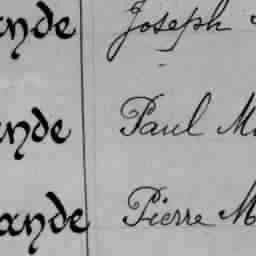 ande Joseph
ande Paul M
ande Pierre M